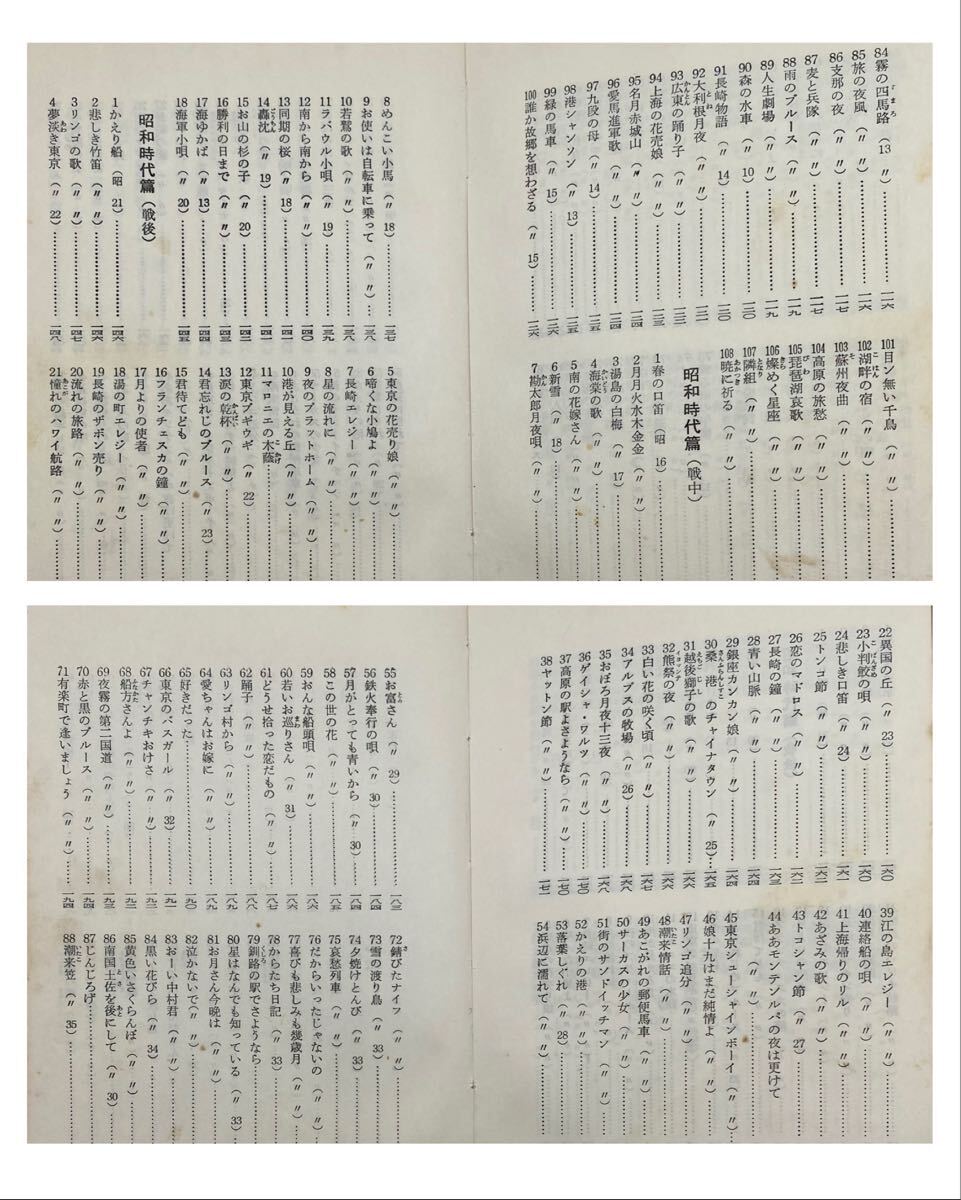 84 霧の四馬路（〃 13）…………一一六
85 旅の夜風（〃 〃）…………一一六
86 支那の夜（〃 〃）…………一一七
87 麦と兵隊（〃 〃）…………一一七
88 雨のブルース（〃 〃）…………一一九
89 人生劇場（〃 〃）…………一一九
90 森の水車（〃 10）…………一二〇
91 長崎物語（〃 14）…………一二〇
92 大利根月夜（〃 〃）…………
93 広東の踊り子（〃 〃）…………
94 上海の花売娘（〃 〃）…………
95 名月赤城山（〃 〃）…………
96 愛馬進軍歌（〃 〃）…………一二四
97 九段の母（〃 14）…………一二五
98 港シャンソン（〃 13）…………一二五
99 緑の馬車（〃 15）…………一二六
100 誰か故郷を想わざる（〃 15）…………一二六
101 目ン無い千鳥（〃 〃）…………
102 湖畔の宿（〃 〃）…………
103 蘇州夜曲（〃 〃）…………
104 高原の旅愁（〃 〃）…………
105 琵琶湖哀歌（〃 〃）…………
106 燦めく星座（〃 〃）…………
107 隣組（〃 〃）…………
108 暁に祈る（〃 〃）…………
昭和時代篇（戦中）
1 春の口笛（昭 16）…………
2 月月火水木金金（〃 〃）…………
3 湯島の白梅（〃 17）…………
4 海棠の歌（〃 〃）…………
5 南の花嫁さん（〃 〃）…………
6 新雪（〃 18）…………
7 勘太郎月夜唄（〃 〃）…………
8 めんこい小馬（〃 18）…………一三七
9 お使いは自転車に乗って（〃 〃）…………一三八
10 若鷲の歌（〃 〃）…………一三八
11 ラバウル小唄（〃 19）…………一三九
12 南から南から（〃 〃）…………一四〇
13 同期の桜（〃 18）…………一四〇
14 轟沈（〃 19）…………一四一
15 お山の杉の子（〃 20）…………一四二
16 勝利の日まで（〃 〃）…………一四三
17 海ゆかば（〃 13）…………一四四
18 海軍小唄（〃 20）…………一四五
昭和時代篇（戦後）
1 かえり船（昭 21）…………一四六
2 悲しき竹笛（〃 〃）…………一四六
3 リンゴの歌（〃 〃）…………一四七
4 夢淡き東京（〃 22）…………一四八
5 東京の花売り娘（〃 〃）…………
6 啼くな小鳩よ（〃 〃）…………
7 長崎エレジー（〃 〃）…………
8 星の流れに（〃 〃）…………
9 夜のプラットホーム（〃 〃）…………
10 港が見える丘（〃 〃）…………
11 マロニエの木蔭（〃 〃）…………
12 東京ブギウギ（〃 22）…………
13 涙の乾杯（〃 〃）…………
14 君忘れじのブルース（〃 23）…………
15 君待てども（〃 〃）…………
16 フランチェスカの鐘（〃 〃）…………
17 月よりの使者（〃 〃）…………
18 湯の町エレジー（〃 〃）…………
19 長崎のザボン売り（〃 〃）…………
20 流れの旅路（〃 〃）…………
21 憧れのハワイ航路（〃 〃）…………
22 異国の丘（〃 23）…………一六〇
23 小判鮫の唄（〃 〃）…………一六〇
24 悲しき口笛（〃 24）…………一六一
25 トンコ節（〃 〃）…………一六二
26 恋のマドロス（〃 〃）…………一六二
27 長崎の鐘（〃 〃）…………一六三
28 青い山脈（〃 〃）…………一六四
29 銀座カンカン娘（〃 〃）…………一六四
30 桑港のチャイナタウン（〃 25）…………一六五
31 越後獅子の歌（〃 〃）…………一六六
32 熊祭の夜（〃 〃）…………一六六
33 白い花の咲く頃（〃 〃）…………一六七
34 アルプスの牧場（〃 26）…………一六八
35 おぼろ月夜十三夜（〃 〃）…………一六八
36 ゲイシャ・ワルツ（〃 〃）…………
37 高原の駅よさようなら（〃 〃）…………一七〇
38 ヤットン節（〃 〃）…………一七一
39 江の島エレジー（〃 〃）…………
40 連絡船の唄（〃 〃）…………
41 上海帰りのリル（〃 〃）…………
42 あざみの歌（〃 〃）…………
43 トコシャン節（〃 27）…………
44 ああモンテンルパの夜は更けて
（〃 〃）…………
45 東京シューシャインボーイ（〃 〃）…………
46 娘十九はまだ純情よ（〃 〃）…………
47 リンゴ追分（〃 〃）…………
48 潮来情話（〃 〃）…………
49 あこがれの郵便馬車（〃 〃）…………
50 サーカスの少女（〃 〃）…………
51 街のサンドイッチマン（〃 〃）…………
52 かえりの港（〃 〃）…………
53 落葉しぐれ（〃 28）…………
54 浜辺に濡れて（〃 〃）…………
55 お富さん（〃 29）…………一八三
56 鉄火奉行の唄（〃 30）…………一八四
57 月がとっても青いから（〃 30）…………一八四
58 この世の花（〃 〃）…………一八五
59 おんな船頭唄（〃 〃）…………一八六
60 若いお巡りさん（〃 31）…………一八六
61 どうせ拾った恋だもの（〃 〃）…………一八七
62 踊子（〃 〃）…………一八八
63 リンゴ村から（〃 〃）…………一八八
64 愛ちゃんはお嫁に（〃 〃）…………一八九
65 好きだった（〃 〃）…………一九〇
66 東京のバスガール（〃 32）…………一九一
67 チャンチキおけさ（〃 〃）…………一九二
68 船方さんよ（〃 〃）…………一九二
69 夜霧の第二国道（〃 〃）…………一九三
70 赤と黒のブルース（〃 〃）…………一九四
71 有楽町で逢いましょう（〃 〃）…………一九四
72 錆びたナイフ（〃 〃）…………
73 雪の渡り鳥（〃 33）…………
74 夕焼けとんび（〃 33）…………
75 哀愁列車（〃 〃）…………
76 だからいったじゃないの（〃 〃）…………
77 喜びも悲しみも幾歳月（〃 〃）…………
78 からたち日記（〃 33）…………
79 釧路の駅でさようなら（〃 〃）…………
80 星はなんでも知っている（〃 33）…………
81 お月さん今晩は（〃 〃）…………
82 泣かないで（〃 〃）…………
83 おーい中村君（〃 〃）…………
84 黒い花びら（〃 34）…………
85 黄色いさくらんぼ（〃 〃）…………
86 南国土佐を後にして（〃 30）…………
87 じんじろげ（〃 〃）…………
88 潮来笠（〃 35）…………